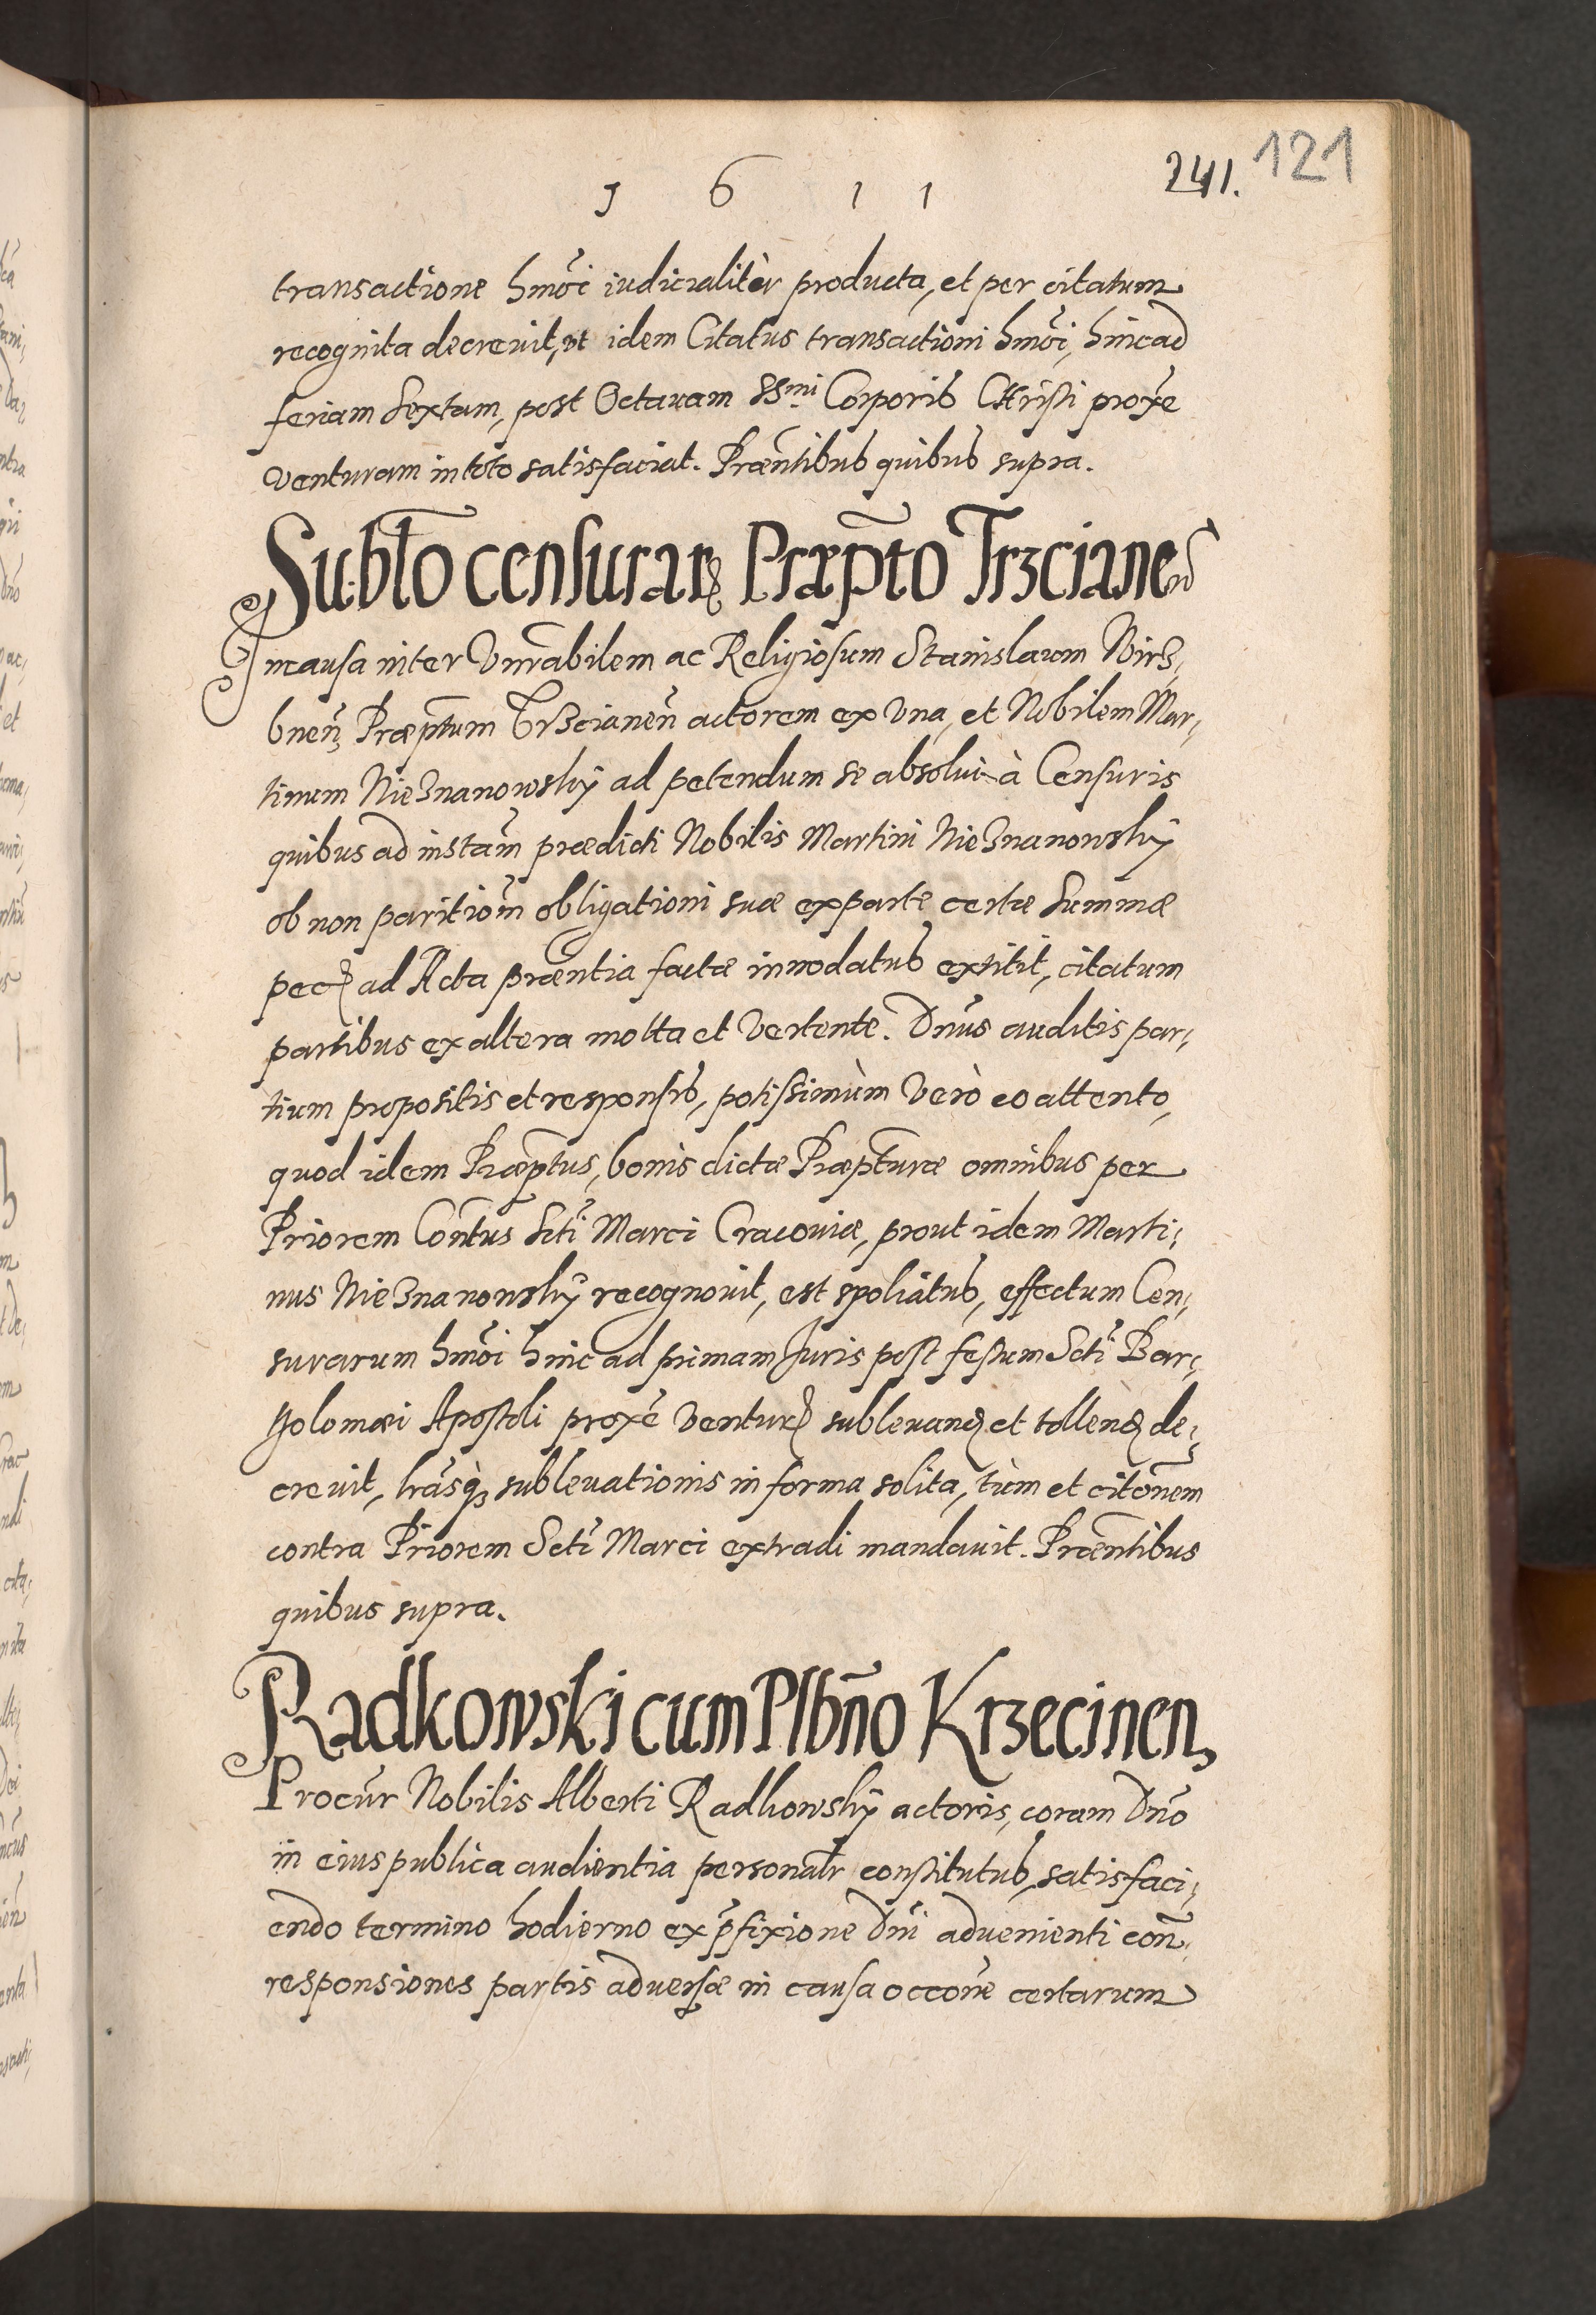 1 6 1 1
241. 121
transactione hm̃oi iudicialitèr producta, et per citatum
recognita decrevit, ut idem Citatus transactioni hm̃oi, hinc ad
feriam Sextam, post Octavam SSmi Corporis Christi proxẽ
venturam in toto satisfaciat. Præñtibus quibus supra.
Subl̃to censurarꝝ Præp̃to Trzcianeñ
In causa inter Vnr̃abilem ac Religiosum Stanislaum Wirz,
bneñ, Præptum Trzcianeñ actorem ex vna, et Nobilem Mar,
tinum Nieznanowsky ad petendum se absolui à Censuris
quibus ad instam̃ prædicti Nobilis Martini Nieznanowsky
ob non paritiom̃ obligationi suæ ex parte certæ Summæ
pecꝝ ad Acta præntia factæ innodatus extitit, citatum
partibus ex altera motta et vertente. Dñus auditis par,
tium propositis et responsis, potissimùm verò eo attento,
quod idem Præp̃tus, bonis dictæ Præp̃turæ omnibus per
Priorem Coñtus Sct̃i Marci Cracoviæ, prout idem Marti,
nus Nieznanowsky recognovit, est spoliatus, effectum Cen,
surarum hm̃oi hinc ad primam Juris post festum Sct̃i Bar,
tholomæi Apostoli proxẽ venturꝝ sublevand̨ et tollend̨ de,
crevit, lr̃asq̨ sublevationis in forma solita, tùm et citõnem
contra Priorem Sct̃i Marci extradi mandavit. Præñtibus
quibus supra.
Radkowski cum Plbño Krzecinen,
Procur̃ Nobilis Alberti Radkowsky actoris, coram Dño
in eius publica audientia personal̃r constitutus, satisfaci,
endo termino hodierno ex p̃fixione Dñi advenienti coñ,
responsiones partis adversæ in causa occõne certarum